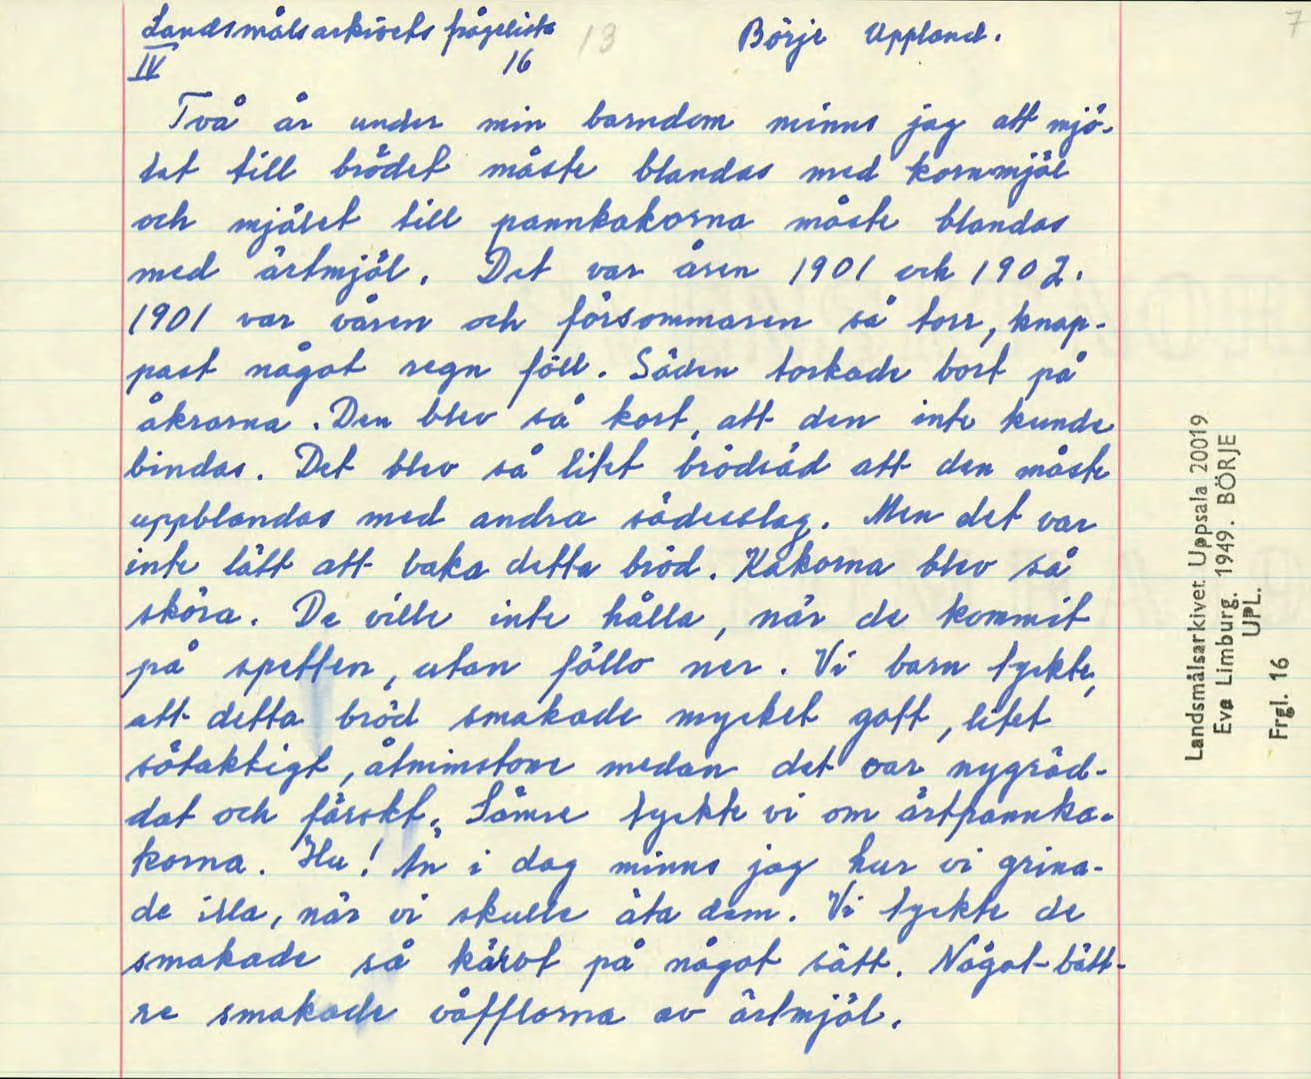 Landsmålsarkivets frågelista 13 Börje Uppland. 7
IV 16
Två år under min barndom minns jag att mjö-
let till brödet måste blandas med kornmjöl
och mjölet till pannkakorna måste blandas
med ärtmjöl. Det var åren 1901 och 1902.
1901 var våren och försommaren så torr, knap-
past något regn föll. Säden torkade bort på
åkrarna. Den blev så kort, att den inte kunde
bindas. Det blev så litet brödsäd att den måste
uppblandas med andra sädesslag. Men det var
inte lätt att baka detta bröd. Kakorna blev så
sköra. De ville inte hålla, när de kommit
på spetten, utan föllo ner. Vi barn tyckte,
att detta bröd smakade mycket gott, litet
sötaktigt, åtminstone medan det var nygräd-
dat och färskt. Sämre tyckte vi om ärtpannka-
korna. Hu! Än i dag minns jag hur vi grina-
de illa, när vi skulle äta dem. Vi tyckte de
smakade så kärvt på något sätt. Något bätt-
re smakade våfflorna av ärtmjöl.
Landsmålsarkivet. Uppsala 20019
Eva Limburg. 1949. BÖRJE
UPL.
Frgl. 16